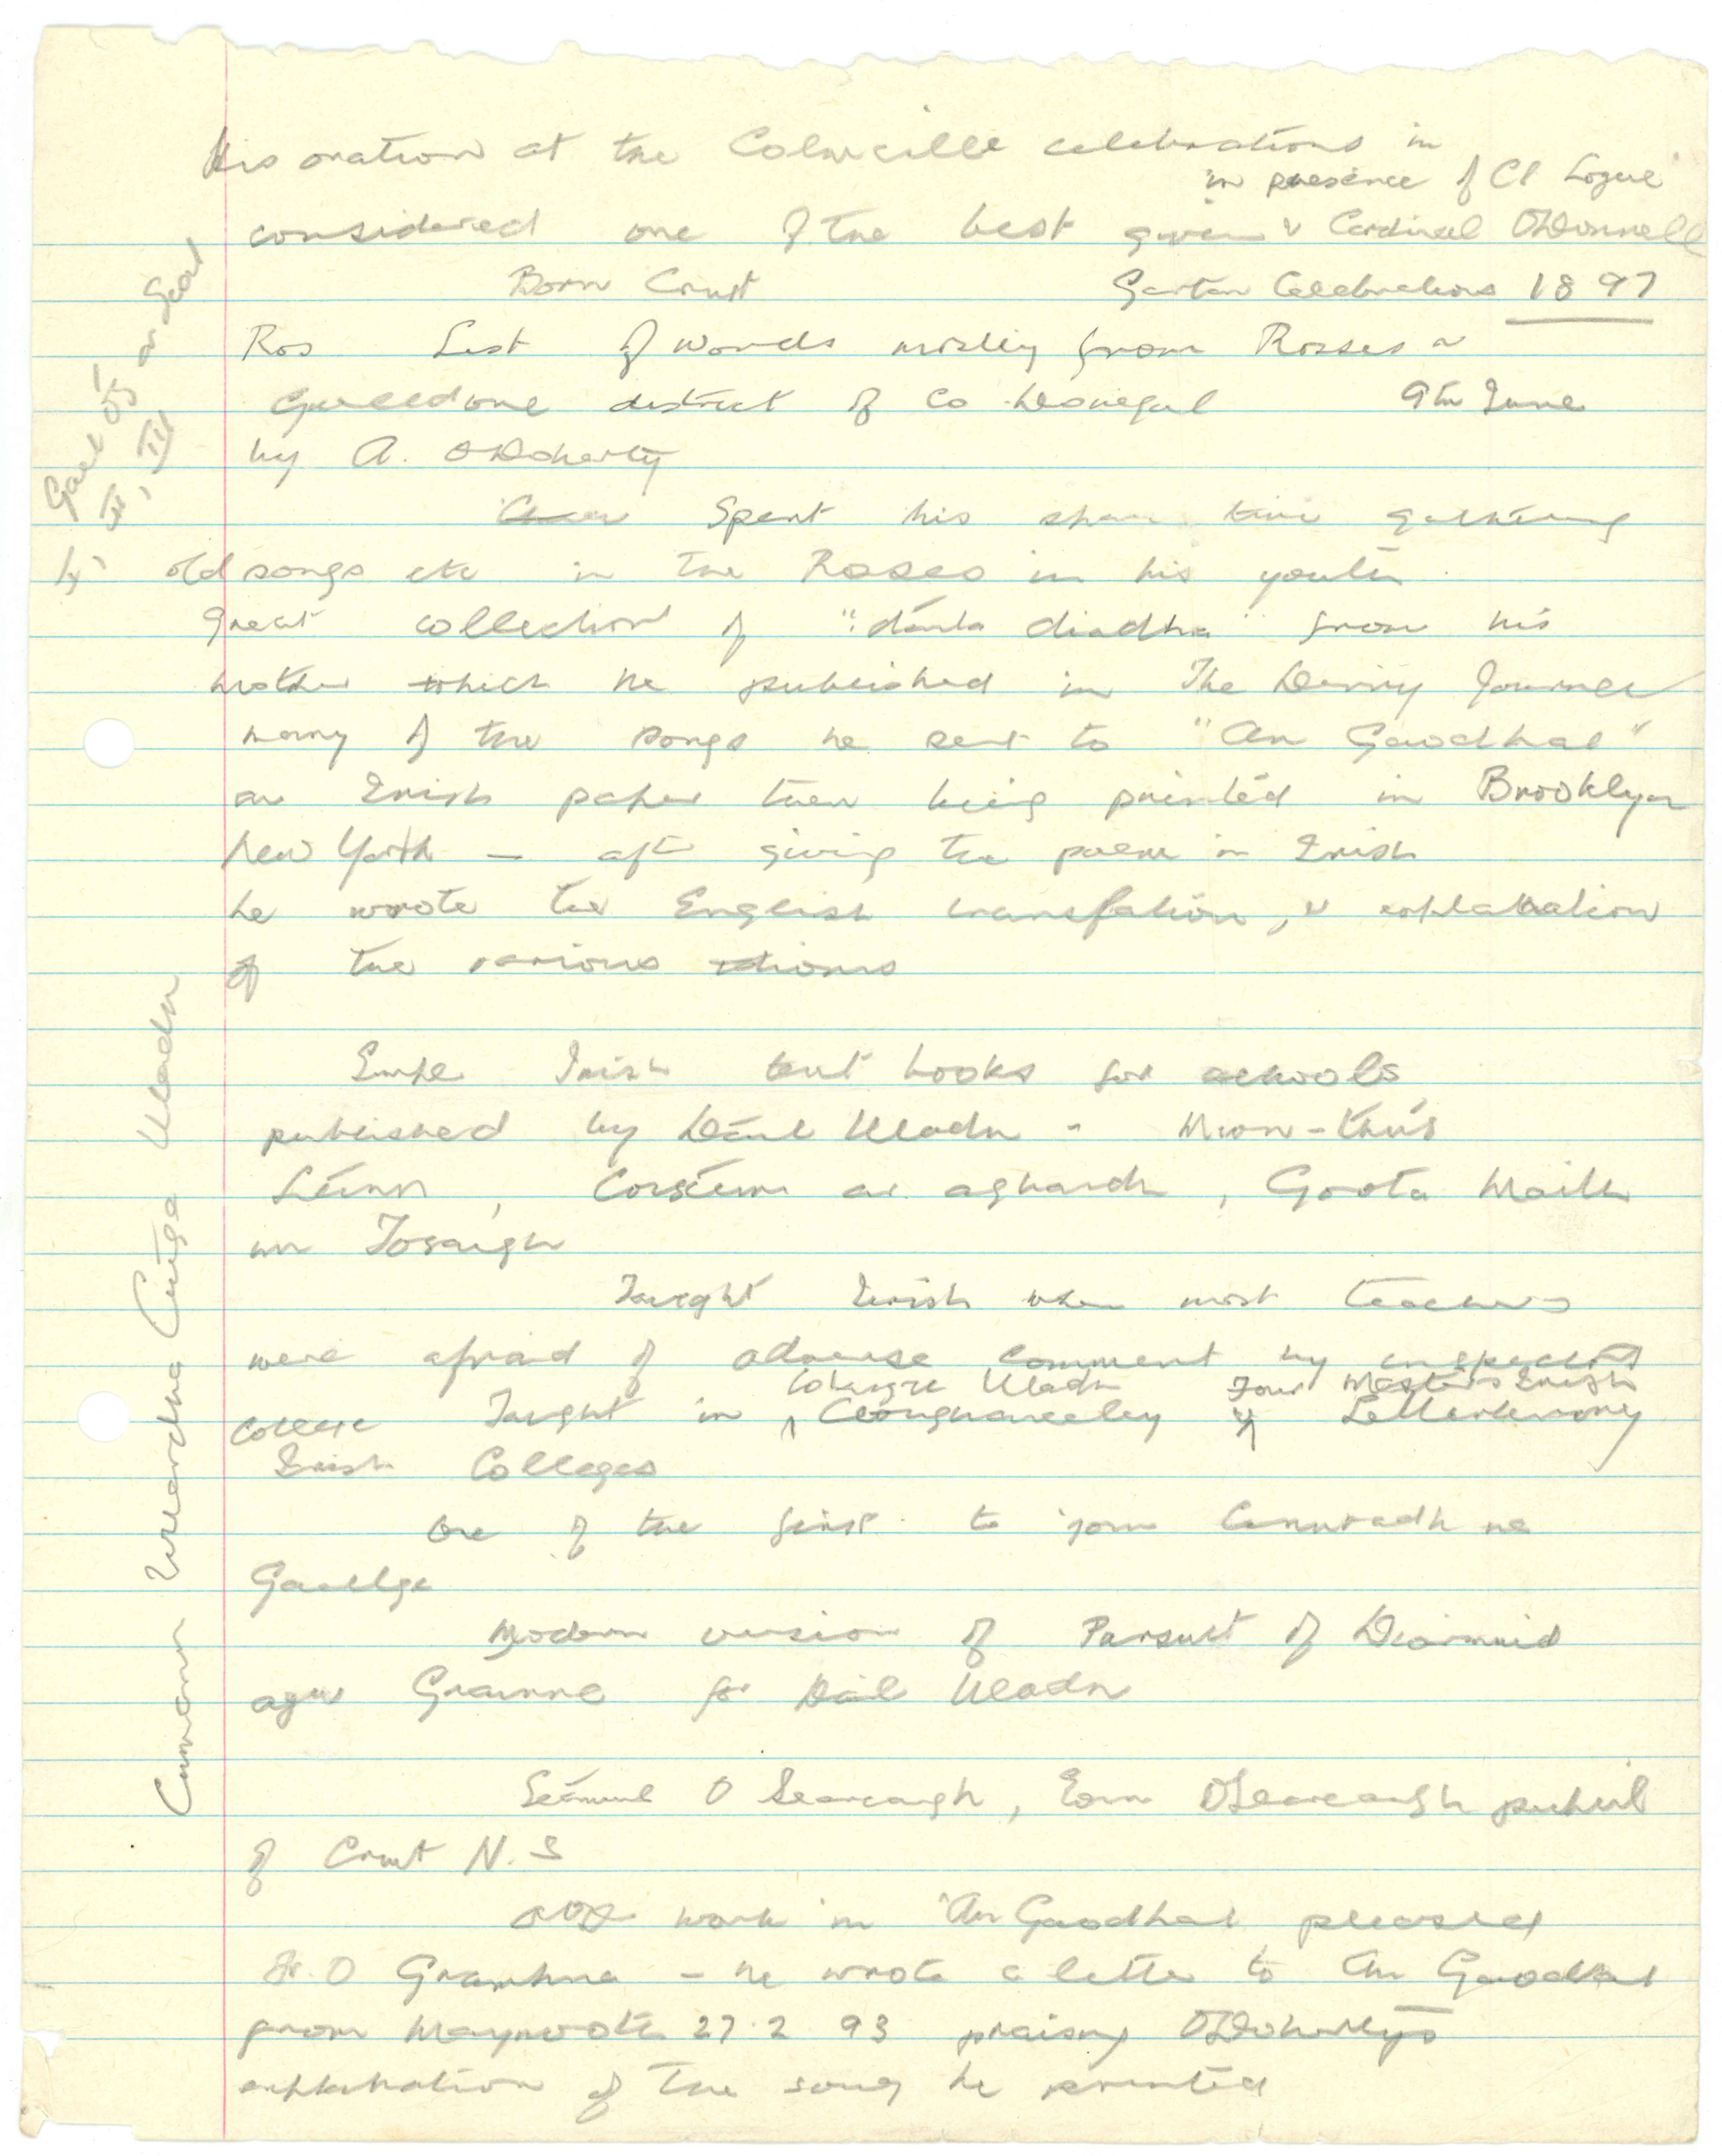 His oration at the Colmcille celebrations in
in presence of Cl Logue
considered one of the best given & Cardinal O'Donnell
Born Cruit Gartan Celebrations 1897
Ros List of words mostly from Rosses &
Gweedore district of Co Donegal 9th June
by A. O'Doherty
Spent his time gathering
old songs etc in the Rosses in his youth.
Great collection of "dánta diadha" from his
mother which he published in The Derry Journal
many of the songs he sent to "An Gaodhal"
an Irish paper then being printed in Brooklyn
New York — after giving the poem in Irish
he wrote the English translation, & explanation
of the various idioms
Simple Irish text books for schools
published by Dáil Uladh - Mion-thús
Léinn, Coiscéim ar aghaidh, Gasta Maith
un Tosaigh
Taught Irish when most teachers
were afraid of adverse comment by inspectors
Coláiste Uladh Four Masters Irish
College Taught in Cloughaneeley & Letterkenny
Irish Colleges
One of the first to join Connradh na
Gaeilge
Modern version of Pursuit of Diarmuid
agus Grainne for Dáil Uladh
Séamus O Searcaigh, Eoin O'Searcaigh pupil
of Cruit N.S
work in "An Gaodhal pleased
Fr. O Gramhna - he wrote a letter to An Gaodhal
from Maynooth 27.2 93 praising O'Doherty's
explanation of the song he printed
Gael Óg
I, II, III
Cumann Uladh